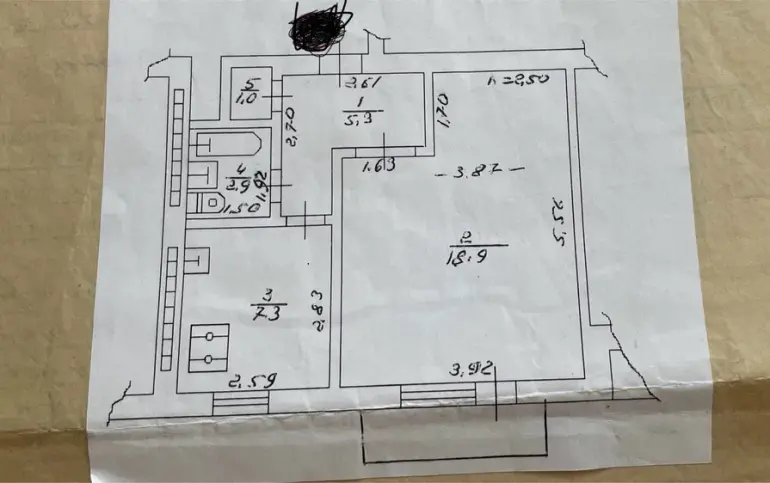 h=2,50
2.61
5
1.0
1
5.3
2,70
1,70
1.63
- 3.87 -
4
2.9
1,92
1.50
5,52
2
18.9
3
7.3
2,83
3.92
2,59